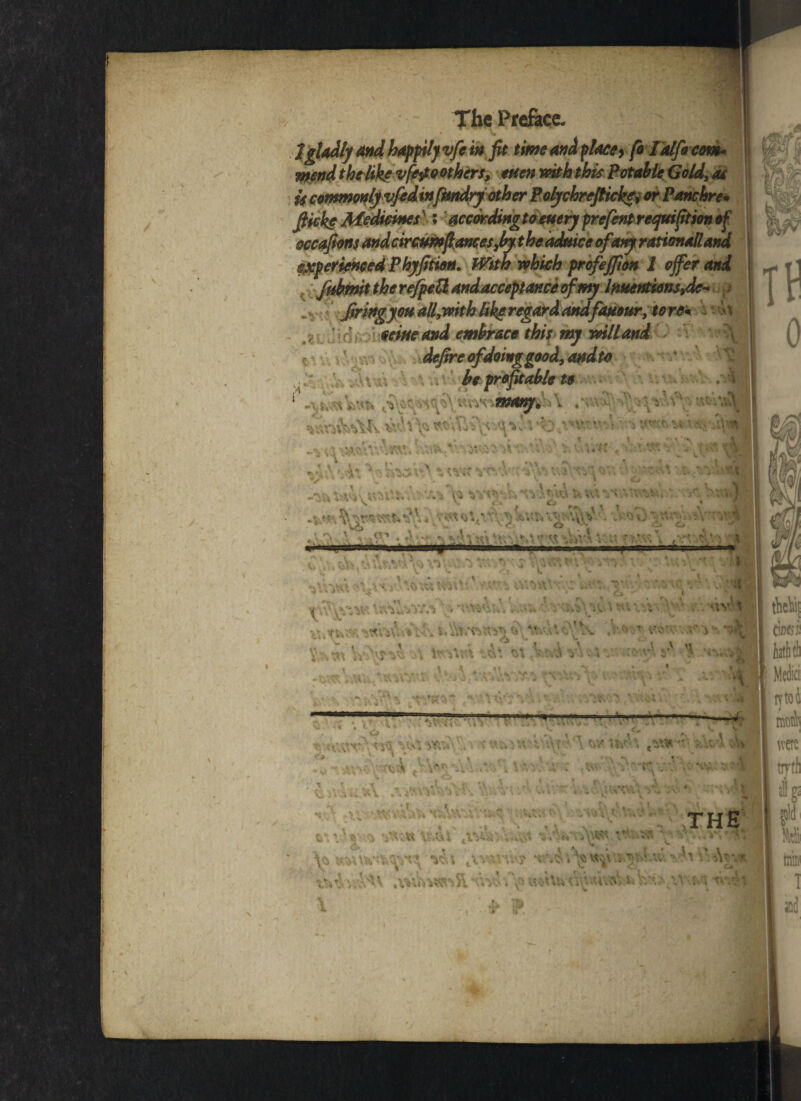 The Preface.
I gladly and happily vſe in fit time and place, ſo I alſo com-
mend the like vſe to others, euen with this Potable Gold, as
is commonly vſed in ſundry other Polychreſtickes, or Panchre-
ſticke Medicines; according to euery preſent requiſition of
occaſions and circumſtances, by the aduice of any rationall and
experienced Phyſition. With which profeſſion I offer and
ſubmit the reſpect and acceptance of my Inuentions, de-
ſiring you all, with like regard and fauour, to re-
ceiue and embrace this my will and
deſire of doing good, and to
be profitable to
many.
THE
TH
O
Medici
were
gold
and